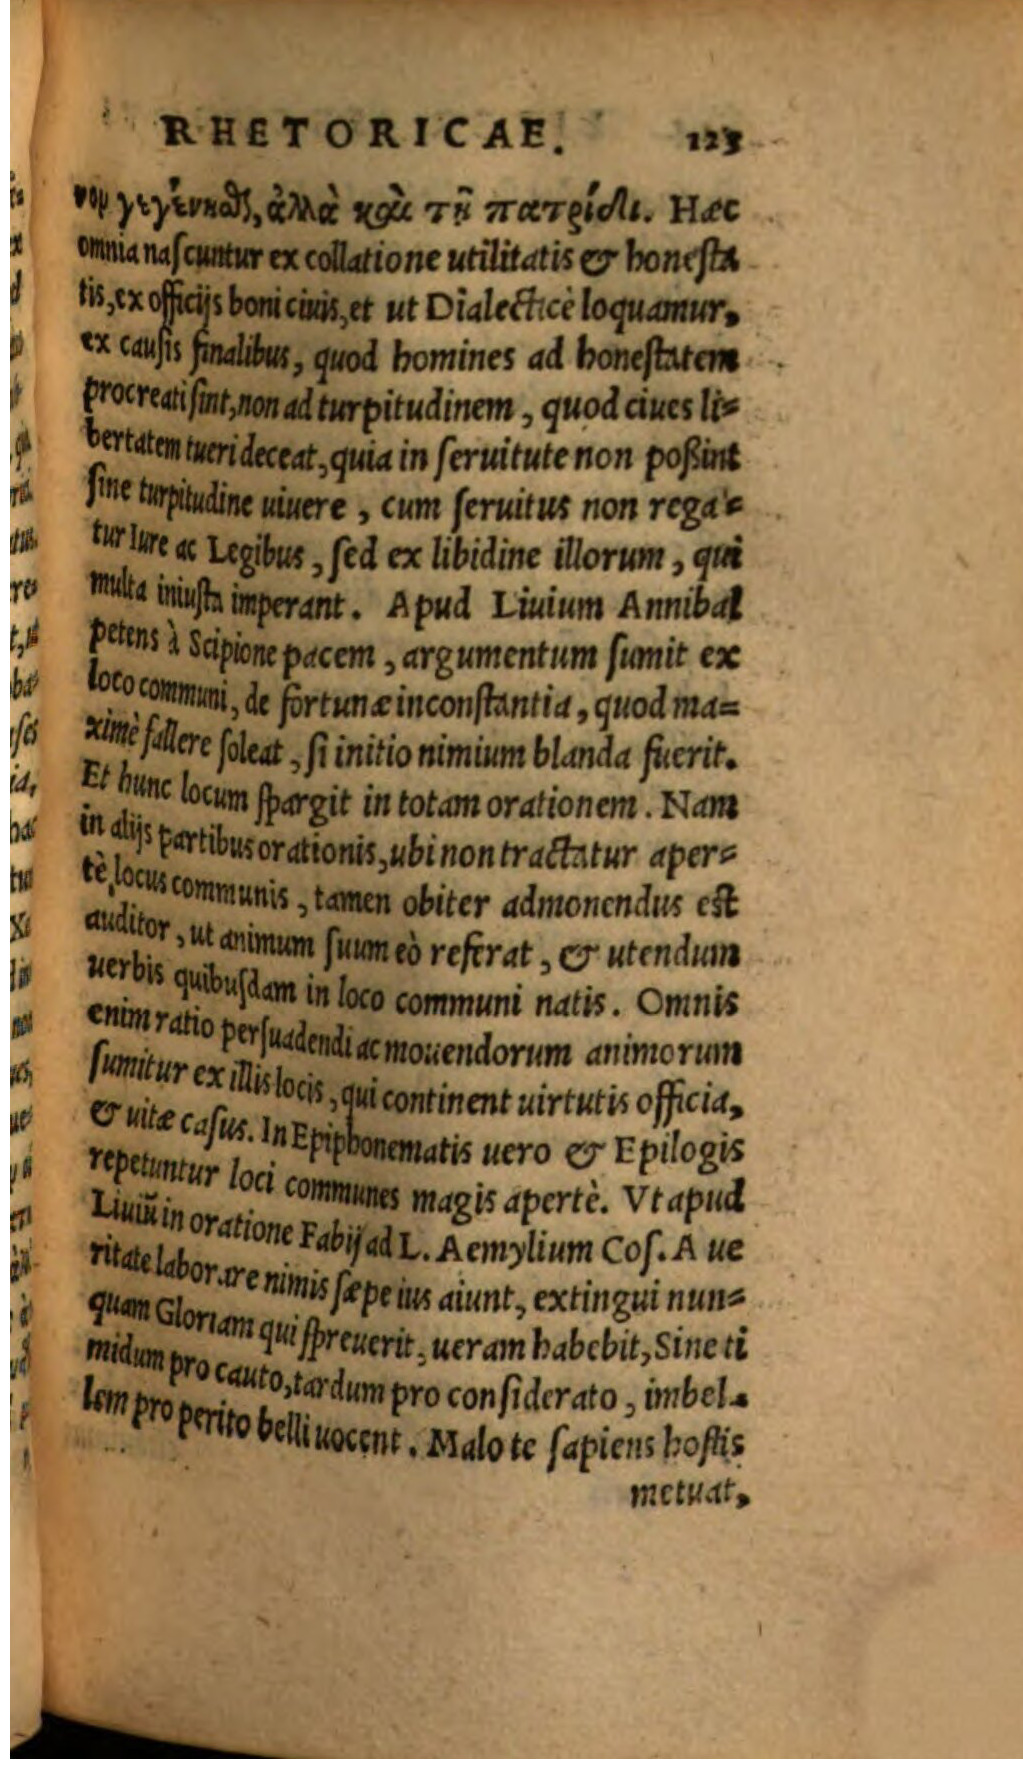 RHETORICAE. 123
νον γεγενῆσθ, ἀλλὰ καὶ τῇ πατρίδι. Hæc
omnia naſcuntur ex collatione utilitatis & honeſta
tis, ex officijs boni ciuis, et ut Dialecticè loquamur,
ex cauſis finalibus, quod homines ad honeſtatem
procreati ſint, non ad turpitudinem, quod ciues li=
bertatem tueri deceat, quia in ſeruitute non poßint
ſine turpitudine uiuere, cum ſeruitus non rega=
tur Iure ac Legibus, ſed ex libidine illorum, qui
multa iniuſta imperant. Apud Liuium Annibal
petens à Scipione pacem, argumentum ſumit ex
loco communi, de fortunæ inconſtantia, quod ma=
ximè fallere ſoleat, ſi initio nimium blanda fuerit.
Et hunc locum ſpargit in totam orationem. Nam
in alijs partibus orationis, ubi non tractatur aper=
tè locus communis, tamen obiter admonendus eſt
auditor, ut animum ſuum eò referat, & utendum
uerbis quibuſdam in loco communi natis. Omnis
enim ratio perſuadendi ac mouendorum animorum
ſumitur ex illis locis, qui continent uirtutis officia,
& uitæ caſus. In Epiphonematis uero & Epilogis
repetuntur loci communes magis apertè. Vt apud
Liuiū in oratione Fabij ad L. Aemylium Coſ. A ue
ritate laborare nimis ſæpe ius aiunt, extingui nun=
quam Gloriam qui ſpreuerit, ueram habebit, Sine ti
midum pro cauto, tardum pro conſiderato, imbel=
lem pro perito belli uocent. Malo te ſapiens hoſtis
metuat,